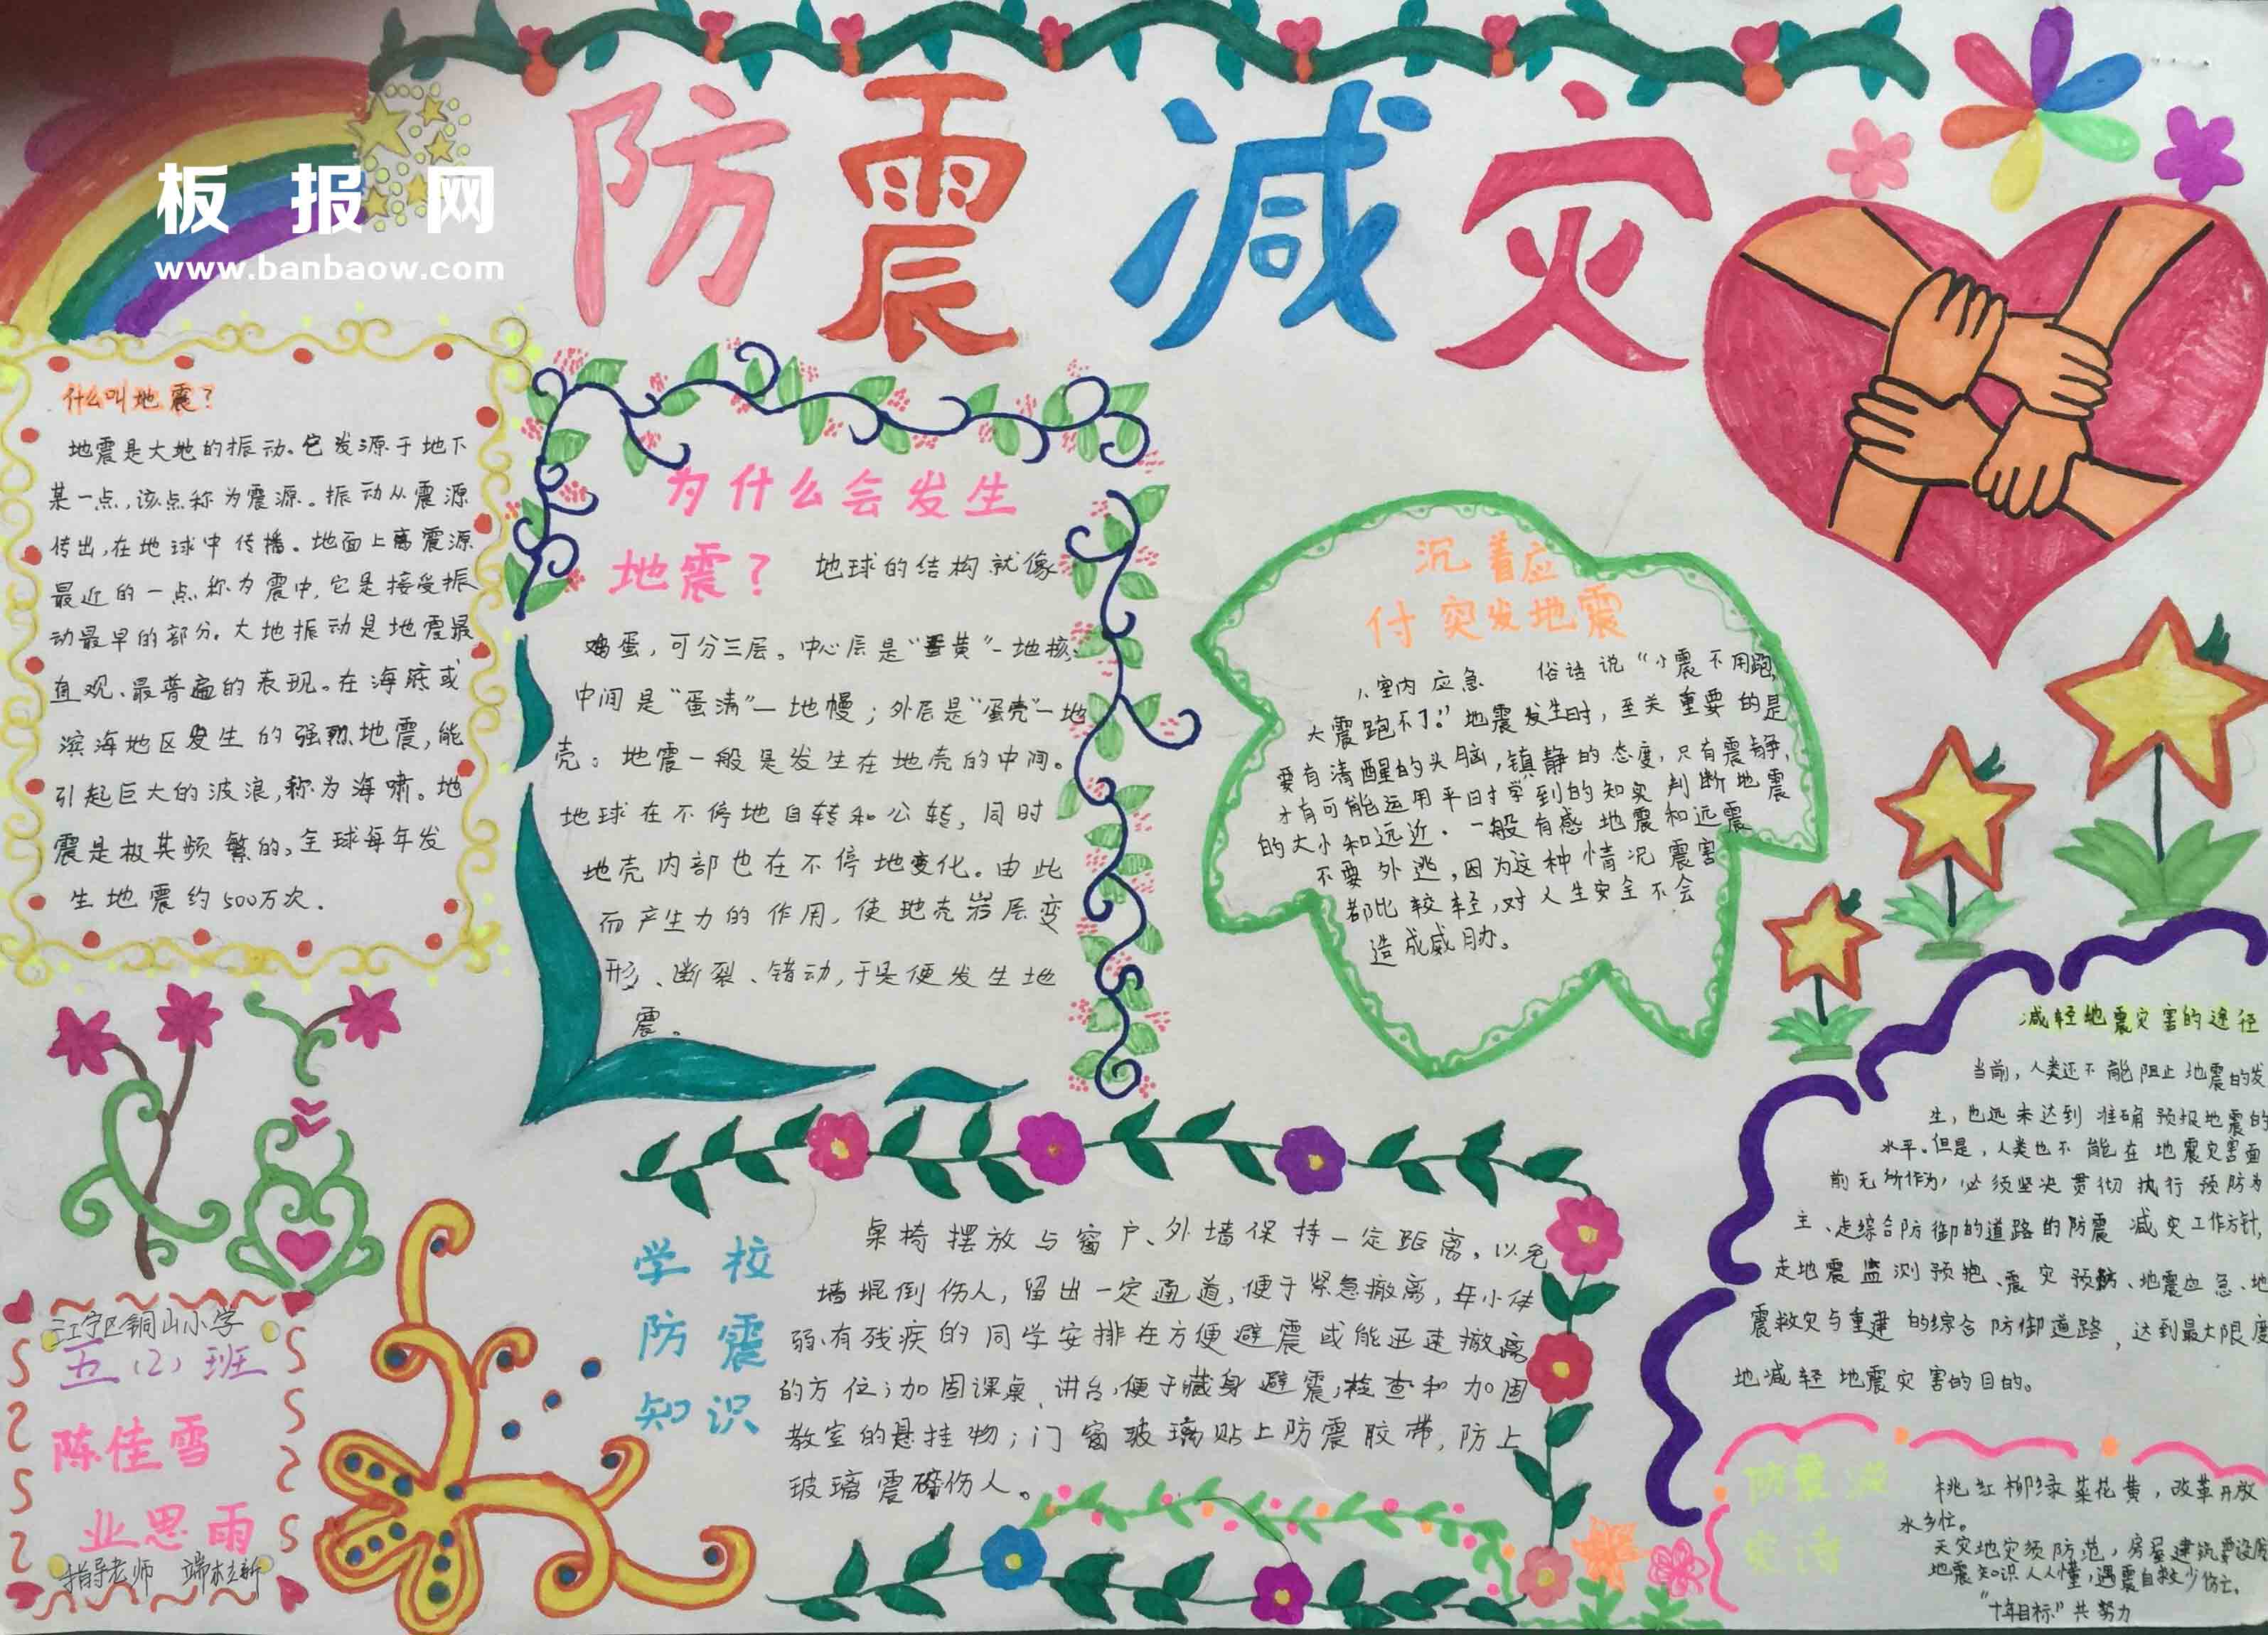 防震减灾
板报网
www.banbaow.com
什么叫地震？
地震是大地的振动。它发源于地下
某一点，该点称为震源。振动从震源
传出，在地球中传播。地面上离震源
最近的一点称为震中，它是接受振
动最早的部分。大地振动是地震最
直观、最普遍的表现。在海底或
滨海地区发生的强烈地震，能
引起巨大的波浪，称为海啸。地
震是极其频繁的，全球每年发
生地震约500万次.
为什么会发生
地震？ 地球的结构就像
鸡蛋，可分三层。中心层是“蛋黄”－地核；
中间是“蛋清”－地幔；外层是“蛋壳”－地
壳。地震一般是发生在地壳的中间。
地球在不停地自转和公转，同时
地壳内部也在不停地变化。由此
而产生力的作用，使地壳岩层变
形、断裂、错动，于是便发生地
震。
沉着应
付突发地震
1、室内应急 俗话说“小震不用跑，
大震跑不了。”地震发生时，至关重要的是
要有清醒的头脑，镇静的态度，只有震静，
才有可能运用平时学到的知实判断地震
的大小和远近．一般有感地震和远震
不要外逃，因为这种情况震害
都比较轻，对人生安全不会
造成威胁。
减轻地震灾害的途径
当前，人类还不能阻止地震的发
生，也远未达到准确预报地震的
水平。但是，人类也不能在地震灾害面
前无所作为，必须坚决贯彻执行预防为
主、走综合防御的道路的防震减灾工作方针，
走地震监测预报、震灾预防、地震应急、地
震救灾与重建的综合防御道路，达到最大限度
地减轻地震灾害的目的。
学校
防震
知识
桌椅摆放与窗户、外墙保持一定距离，以免
墙堒倒伤人，留出一定通道，便于紧急撤离，年小体
弱、有残疾的同学安排在方便避震或能迅速撤离
的方位；加固课桌、讲台，便于藏身避震；检查和加固
教室的悬挂物；门窗玻璃贴上防震胶带，防上
玻璃震碎伤人。
江宁区铜山小学
五（2）班
陈佳雪
业思雨
指导老师
防震减
灾诗
桃红柳绿菜花黄，改革开放
水乡忙。
天灾地灾须防范，房屋建筑要设防
地震知识人人懂，遇震自救少伤亡。
“十年目标”共努力